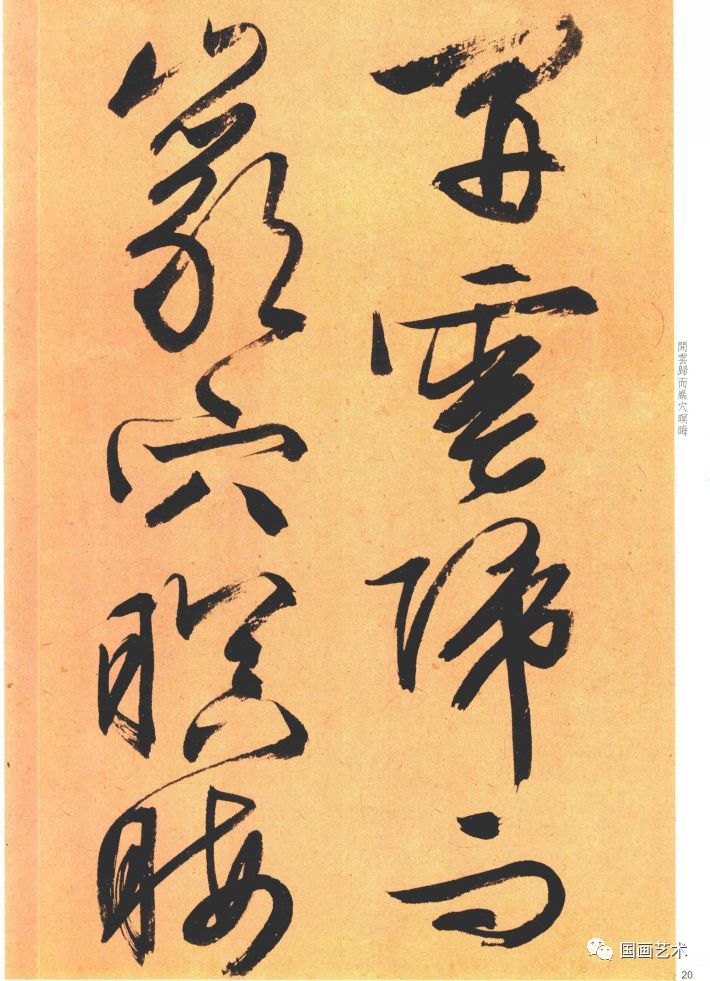 開雲歸而
巖穴暝晦
開雲歸而巖穴暝晦
国画艺术
20